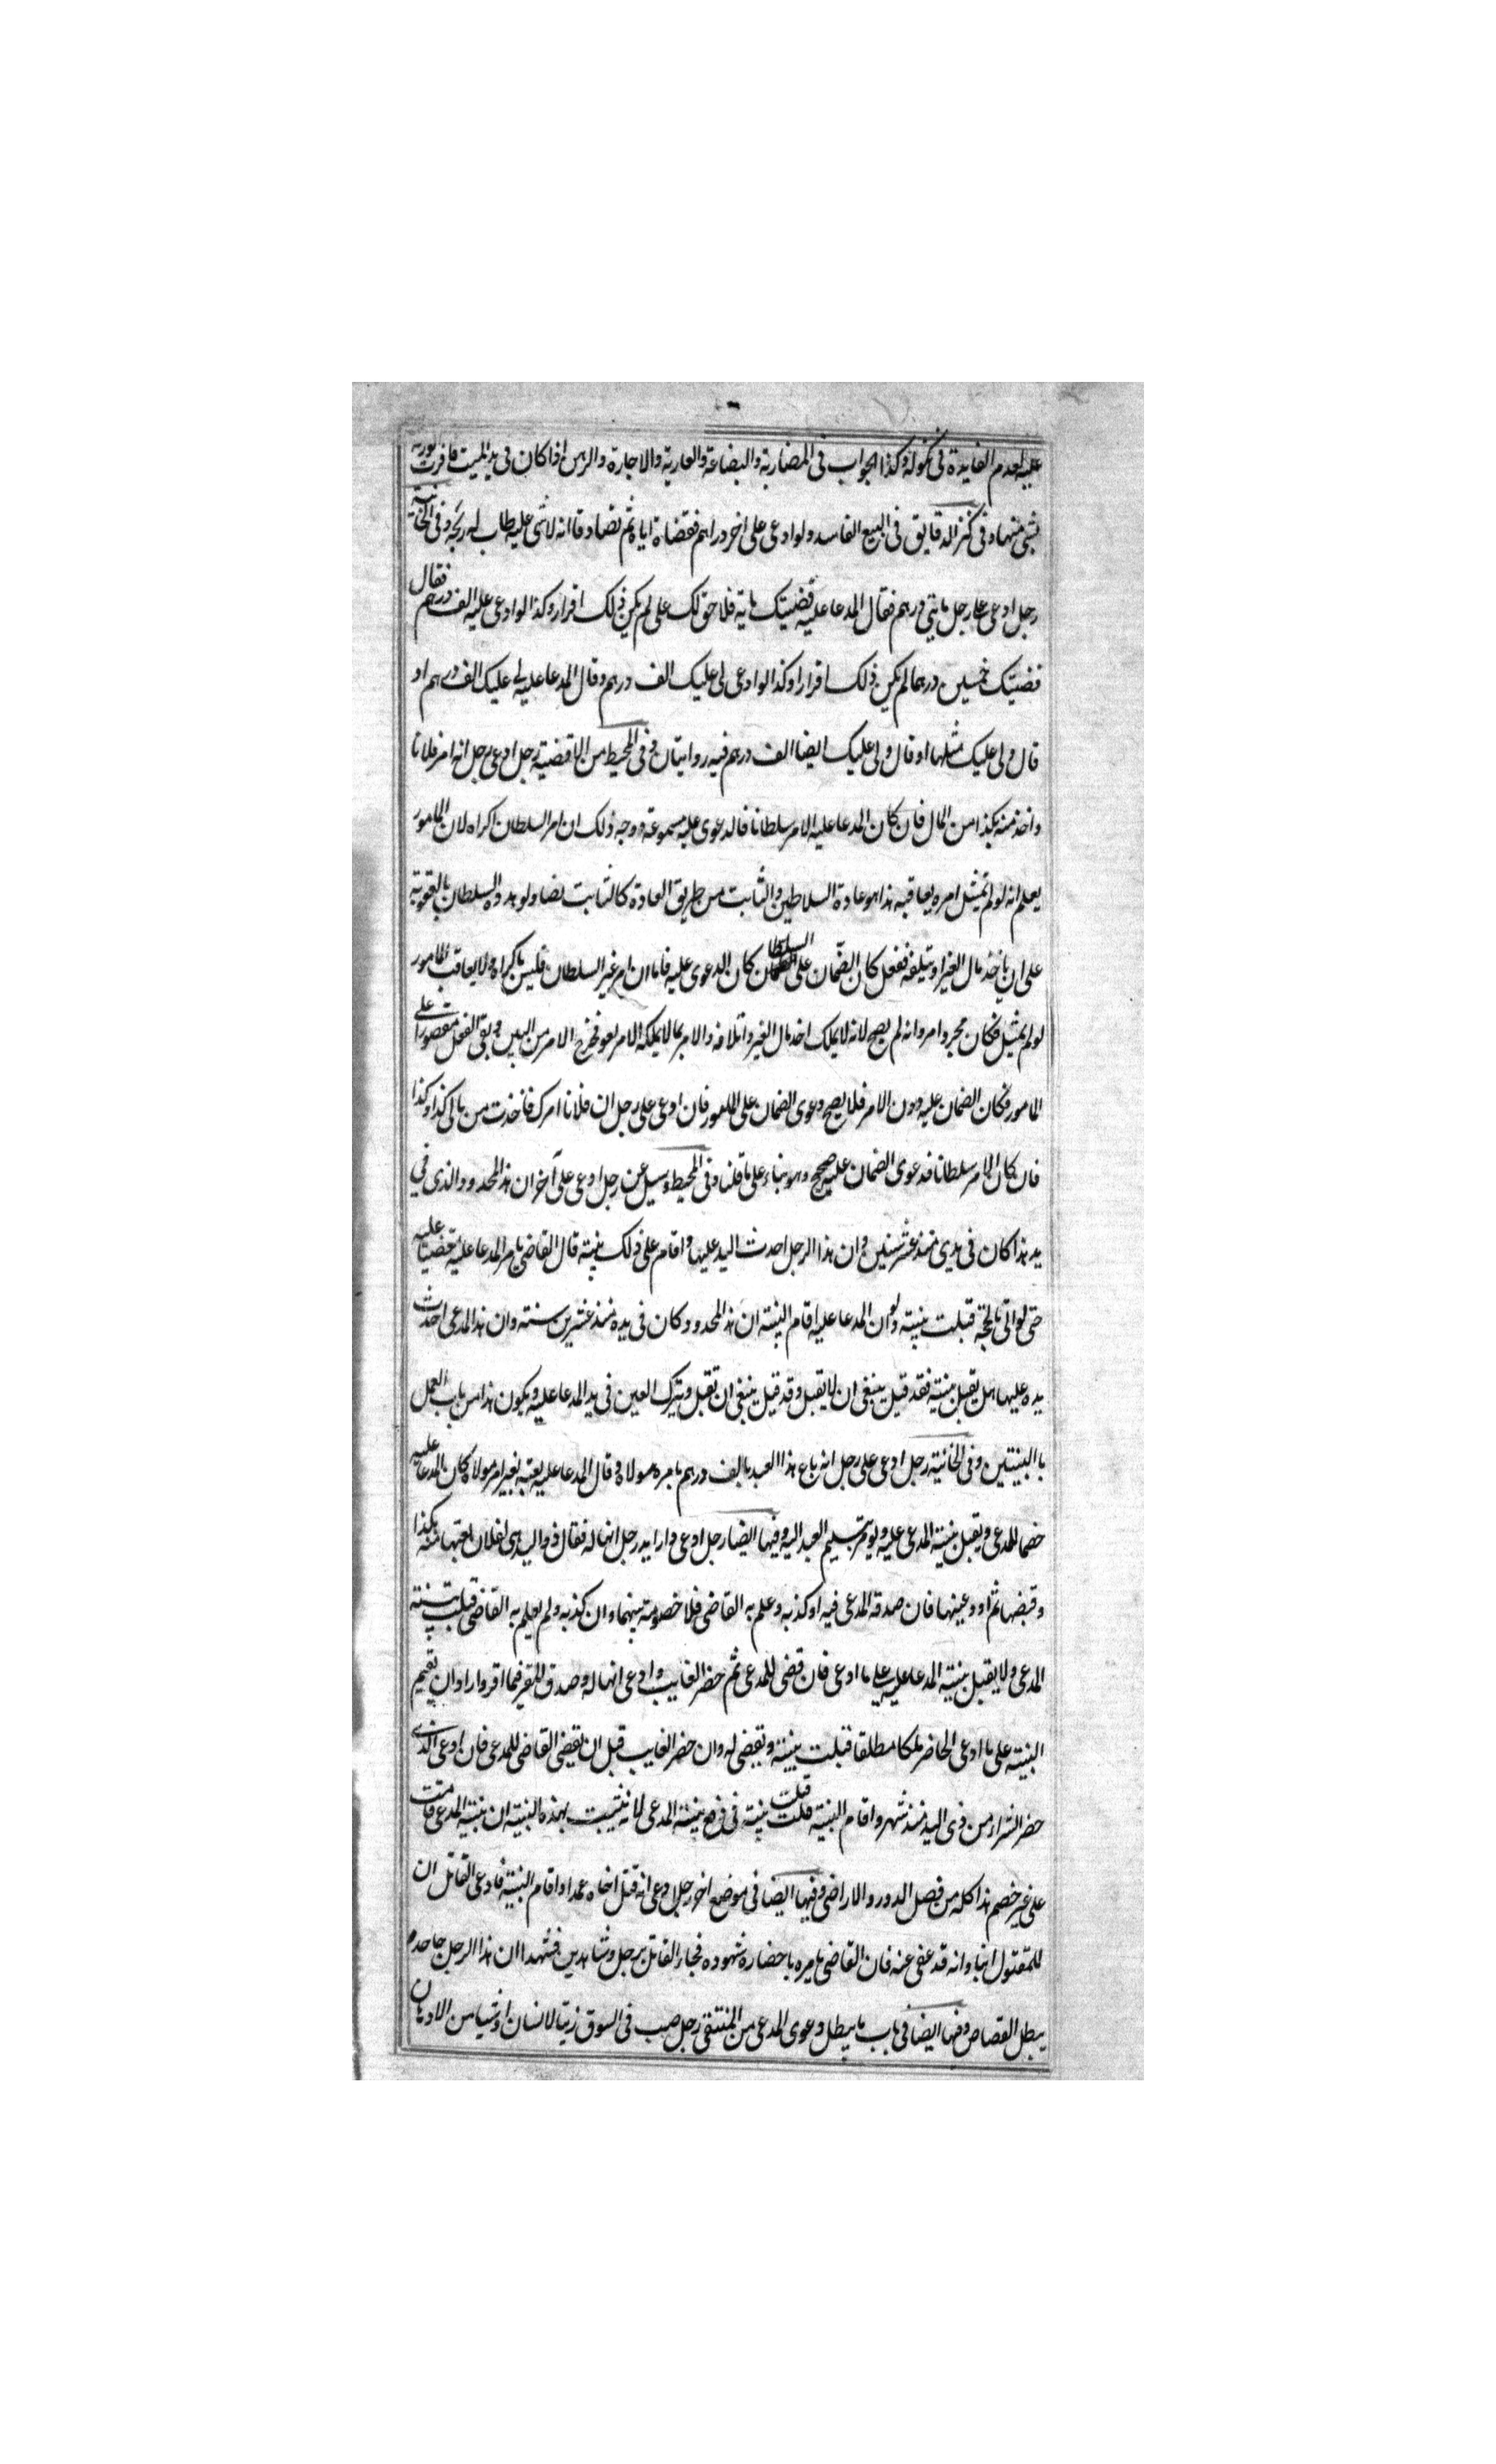 عليه لعدم الفايدة فى نكوله وكذا الجواب فى المضاربة والبضاعة والعارية والاجارة والرهن اذا كان فى يد الميت فاقرت بورثه
بشى منها وفى كنز الدقايق فى البيع الفاسد ولو ادعى على اخر دراهم فقضاه اياه ثم تصادقا انه لا شى عليه طاب له ربحه وفى الخانية
رجل ادعى على رجل مايتى درهم فقال المدعا عليه قضيتك ماية فلا حق لك على لم يكن ذلك اقرار وكذا لو ادعى عليه الف درهم فقال
قضيتك خمسين درهما لم يكن ذلك اقرارا وكذا لو ادعى لى عليك الف درهم وقال المدعا عليه لى عليك الف درهم او
قال ولى عليك مثلها او قال ولى عليك ايضا الف درهم فيه روايتان وفى المحيط من الاقضية رجل ادعى رجل انه امر فلانا
واخذ منه كذا من المال فان كان المدعا عليه الامر سلطانا فالدعوى عليه مسموعة ووجه ذلك ان امر السلطان اكراه لان المامور
يعلم انه لو لم يمتثل امره يعاقبه هذا هو عادة السلاطين والثابت من طريق العادة كالثابت نصا ولو هدده السلطان بالعقوبة
على ان ياخذ مال الغير او يتلفه ففعل كان الضمان على السلطان كان الدعوى عليه فاما ان امر غير السلطان فليس باكراه ولا يعاقب المامور
لو لم يمتثل فكان مجرد امر وانه لم يصح لانه لا يملك اخذ مال الغير واتلافه والامر بما لا يملكه الامر لغو فخرج الامر من البين وبقى الفعل مقصورا على
المامور فكان الضمان عليه دون الامر فلا يصح دعوى الضمان على المامور فان ادعى على رجل ان فلانا امرك فاخذت من مالى كذا وكذا
فان كان الامر سلطانا فدعوى الضمان عليه صحيح وهو بناء على ما قلنا وفى المحيط وسيل عن رجل ادعى على آخر ان هذا المحدود الذى فى
يد هذا كان فى يدى منذ عشر سنين وان هذا الرجل احدث اليد عليها واقام على ذلك بينة قال القاضى يامر المدعا عليه قضيتا عليه
حتى لو اتى بالحجة قبلت بينته ولو ان المدعا عليه اقام البينة ان هذا المحدود كان فى يده منذ عشرين سنة وان هذا المدعى احدث
يده عليها هل يقبل بينته فقد قيل ينبغى ان لا يقبل وقد قيل ينبغى ان تقبل ويترك العين فى يد المدعا عليه ويكون هذا من باب العمل
با البينتين وفى الخانية رجل ادعى على رجل انه باع هذا العبد بالف درهم بامره مولاه وقال المدعا عليه بعته بغير امر مولاه كان المدعا عليه
خصما للمدعى ويقبل بينة المدعى عليه ويومر بتسليم العبد اليه وفيها ايضا رجل ادعى دارا بيد رجل انها له فقال ذو اليد هى لفلان ابتعتها منه بكذا
وقبضها ثم اودعينها فان صدقه المدعى فيه او كذبه وعلم به القاضى فلا خصومة بينهما وان كذبه ولم يعلم به القاضى قبلت بينة
المدعى ولا يقبل بينة المدعا عليه على ما ادعى فان قضى للمدعى ثم حضر الغايب وادعى انها له وصدق المقر فيما اقر واراد ان يقيم
البينة على ما ادعى الحاضر ملكا مطلقا قبلت بينته ويقضى له وان حضر الغايب قبل ان يقضى القاضى للمدعى فان ادعى الذى
حضر الشراء من ذى اليد منذ شهر واقام البينة قبلت بينته فى دفع بينة المدعى لانه يثبت بهذه البينة ان بينة المدعى قامت
على غير خصم هذا كله من فصل الدور والاراضى وفيها ايضا فى موضع اخر رجل ادعى انه قتل اخاه عمدا واقام البينة فادعى القاتل ان
للمقتول ابنا وانه قد عفى عنه فان القاضى يامره باحضاره شهوده فجاء القاتل برجل وشاهدين فشهدا ان هذا الرجل جاحدم
يبطل القصاص وفيها ايضا فى باب ما يبطل دعوى المدعى من المنتقى رجل صب فى السوق زيتا لانسان او شيا من الادهان